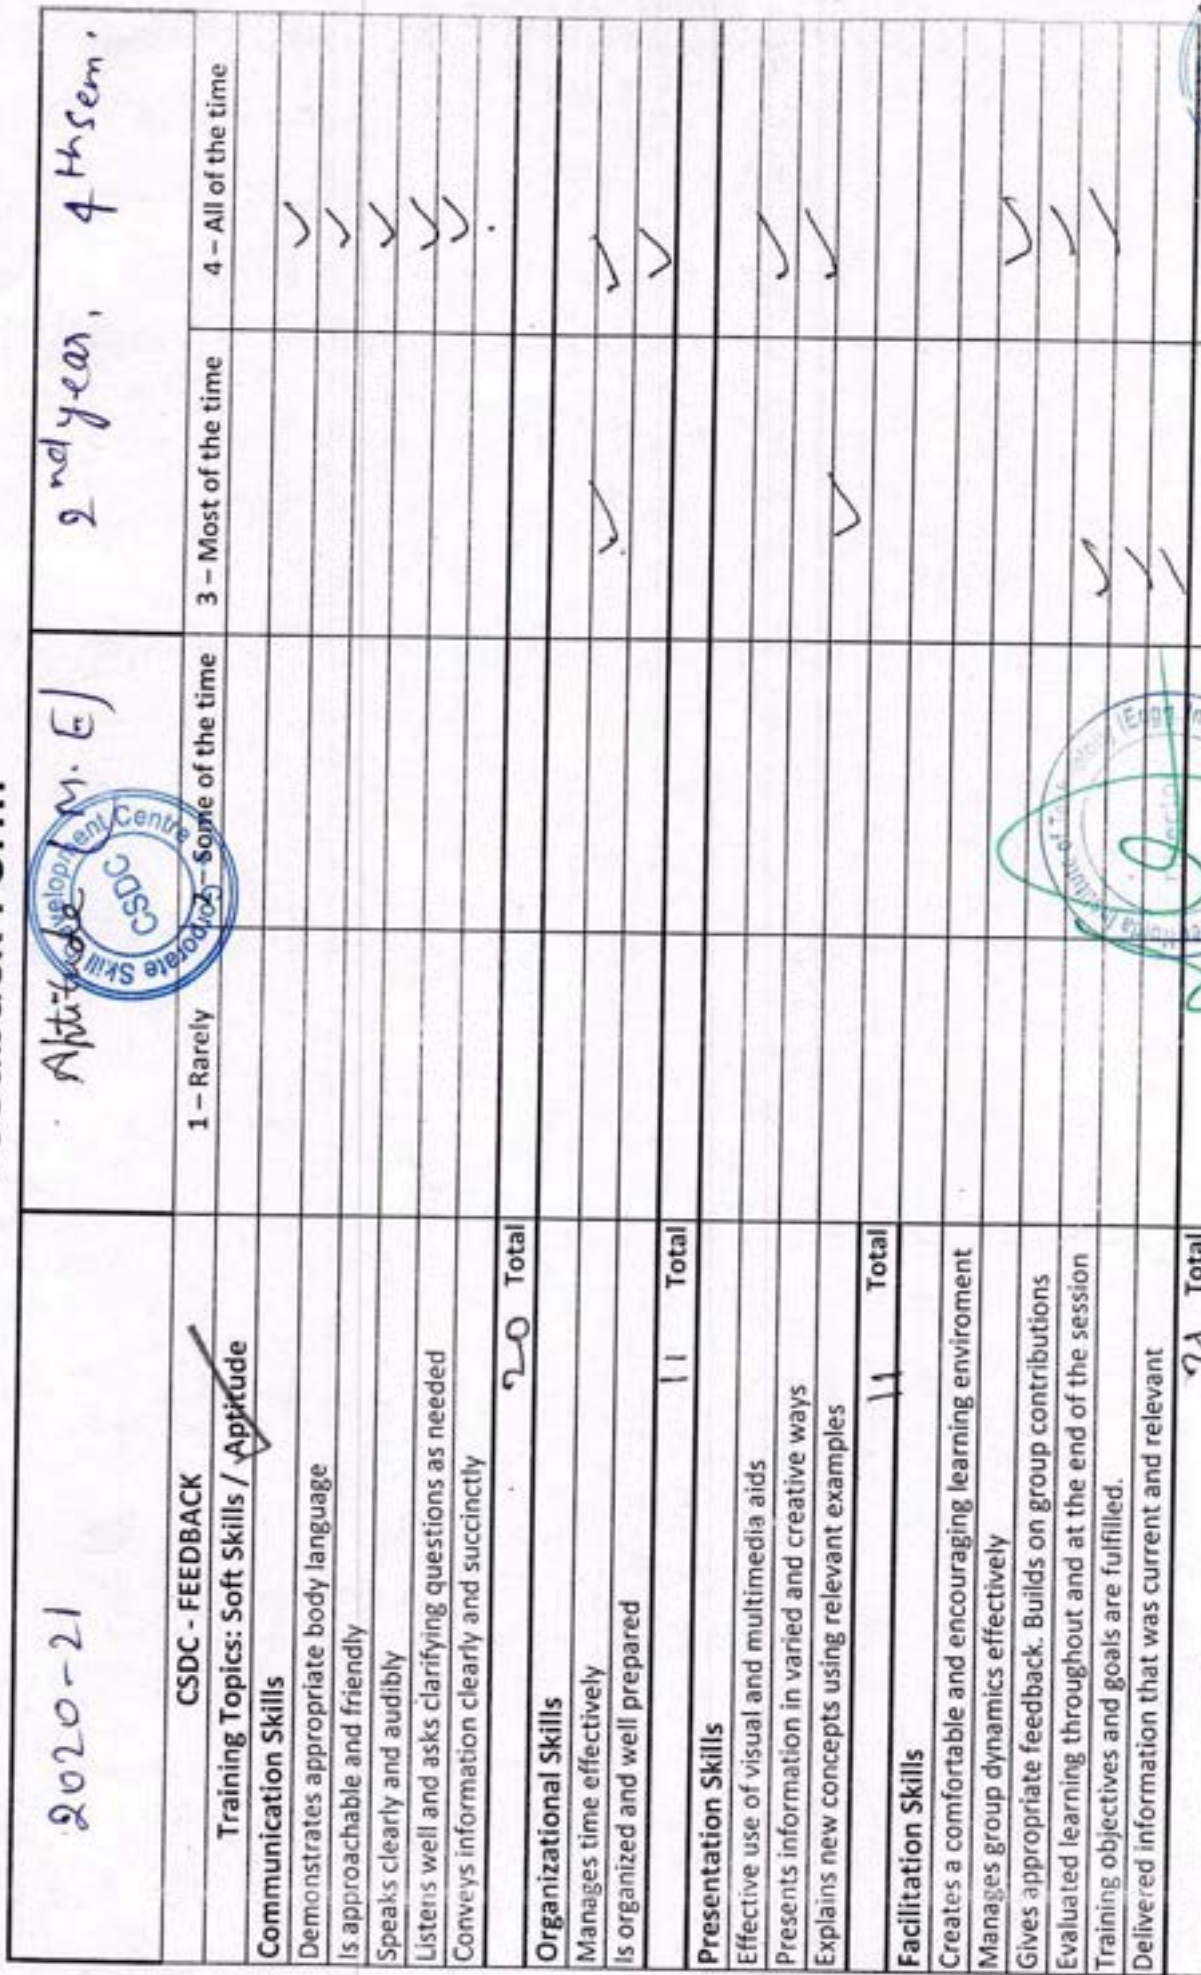 2020-21
Aptitude (M.E)
2nd year, 4th sem.
CSDC - FEEDBACK
1 – Rarely
2 – Some of the time
3 – Most of the time
4 – All of the time
Training Topics: Soft Skills / Aptitude
Communication Skills
Demonstrates appropriate body language
Is approachable and friendly
Speaks clearly and audibly
Listens well and asks clarifying questions as needed
Conveys information clearly and succinctly
20 Total
Organizational Skills
Manages time effectively
Is organized and well prepared
11 Total
Presentation Skills
Effective use of visual and multimedia aids
Presents information in varied and creative ways
Explains new concepts using relevant examples
11 Total
Facilitation Skills
Creates a comfortable and encouraging learning enviroment
Manages group dynamics effectively
Gives appropriate feedback. Builds on group contributions
Evaluated learning throughout and at the end of the session
Training objectives and goals are fulfilled.
Delivered information that was current and relevant
Total
Corporate Skill Development Centre
CSDC